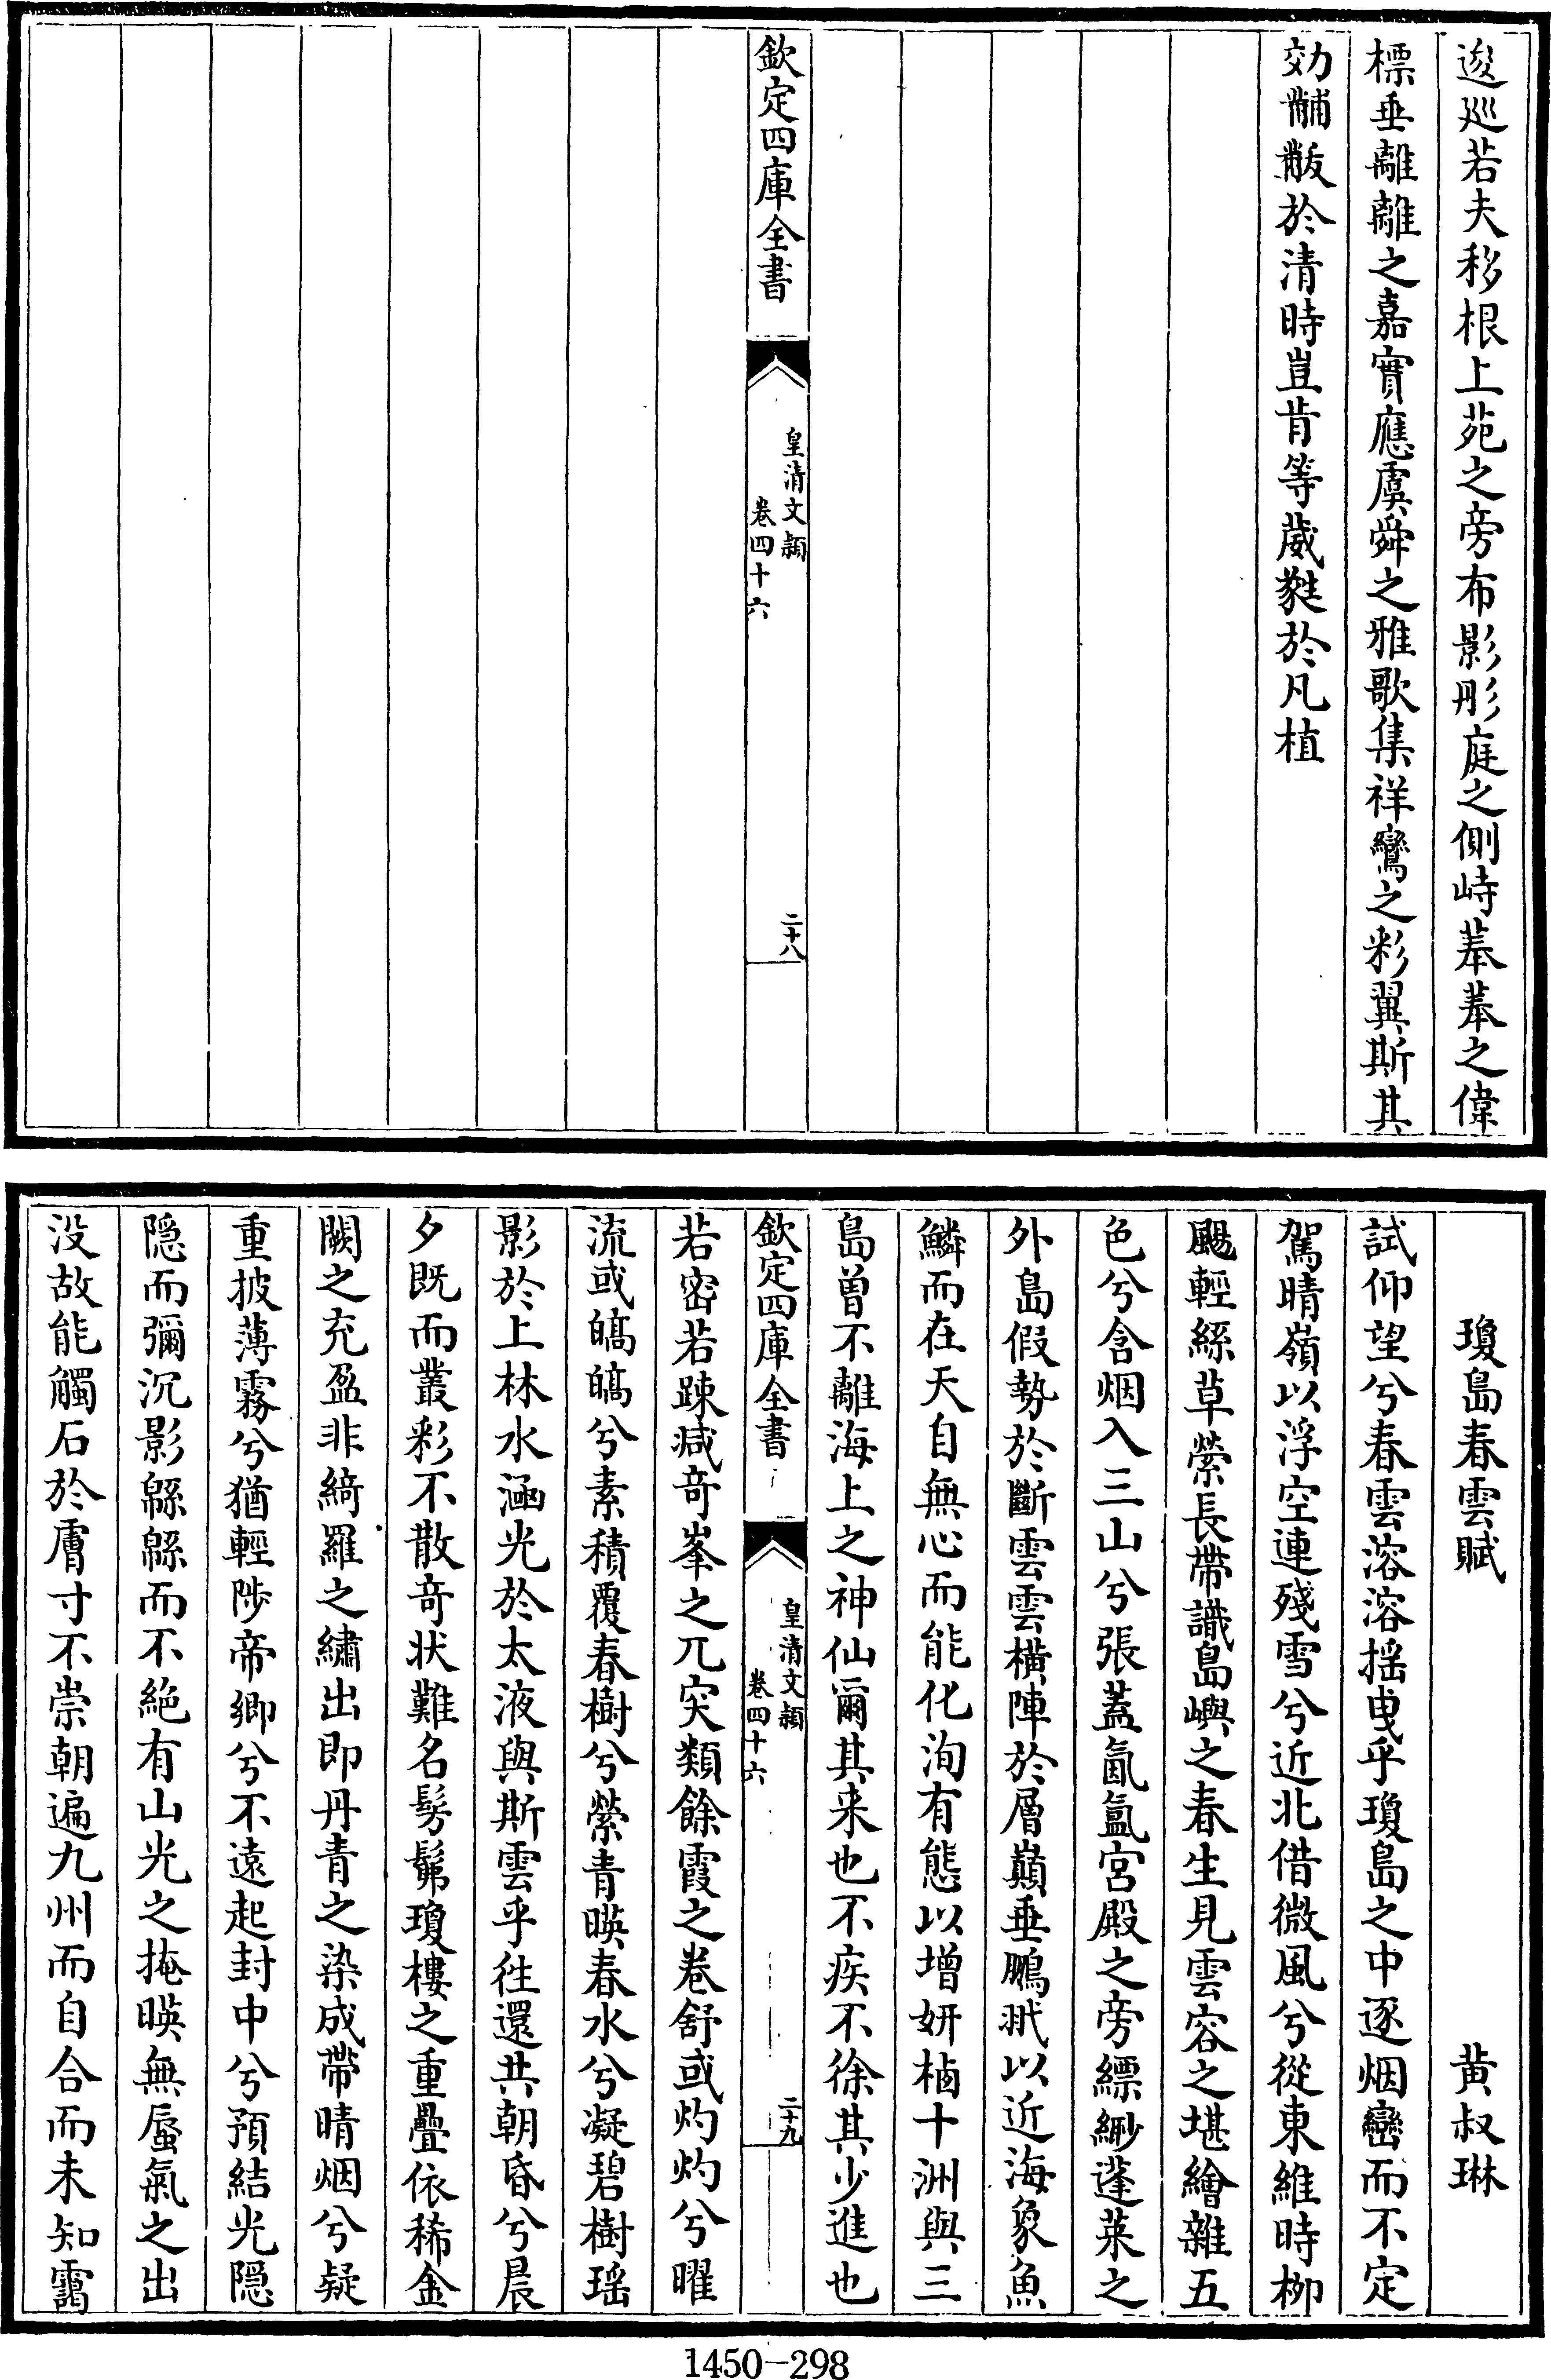 逡廵若夫移根上苑之旁布影彤庭之側峙菶菶之偉
標垂離離之嘉實應虞舜之雅歌集祥鸞之彩翼斯其
効黼黻於清時豈肯等葳蕤於凡植
欽定四庫全書
皇清文穎
卷四十六
二十八
瓊島春雲賦 黄叔琳
試仰望兮春雲溶溶揺曳乎瓊島之中逐烟巒而不定
駕晴嶺以浮空連殘雪兮近北借微風兮從東維時柳
颺輕絲草縈長帶識島嶼之春生見雲容之堪繪雜五
色兮含烟入三山兮張蓋氤氲宫殿之旁縹緲蓬萊之
外島假勢於斷雲雲横陣於層巔垂鵬翄以近海象魚
鱗而在天自無心而能化洵有態以增妍樐十洲與三
島曽不離海上之神仙爾其来也不疾不徐其少進也
欽定四庫全書
皇清文穎
卷四十六
二十九
若密若踈减奇峯之兀突類餘霞之卷舒或灼灼兮曜
流或皜皜兮素積覆春樹兮縈青暎春水兮凝碧樹瑶
影於上林水涵光於太液與斯雲乎徃還共朝昏兮晨
夕既而叢彩不散奇状難名髣髴瓊樓之重疊依稀金
闕之充盈非綺羅之繡出即丹青之染成帶晴烟兮疑
重披薄霧兮猶輕陟帝鄉兮不遠起封中兮預結光隠
隠而彌沉影緜緜而不絶有山光之掩暎無蜃氣之出
没故能觸石於膚寸不崇朝遍九州而自合而未知靄
1450-298